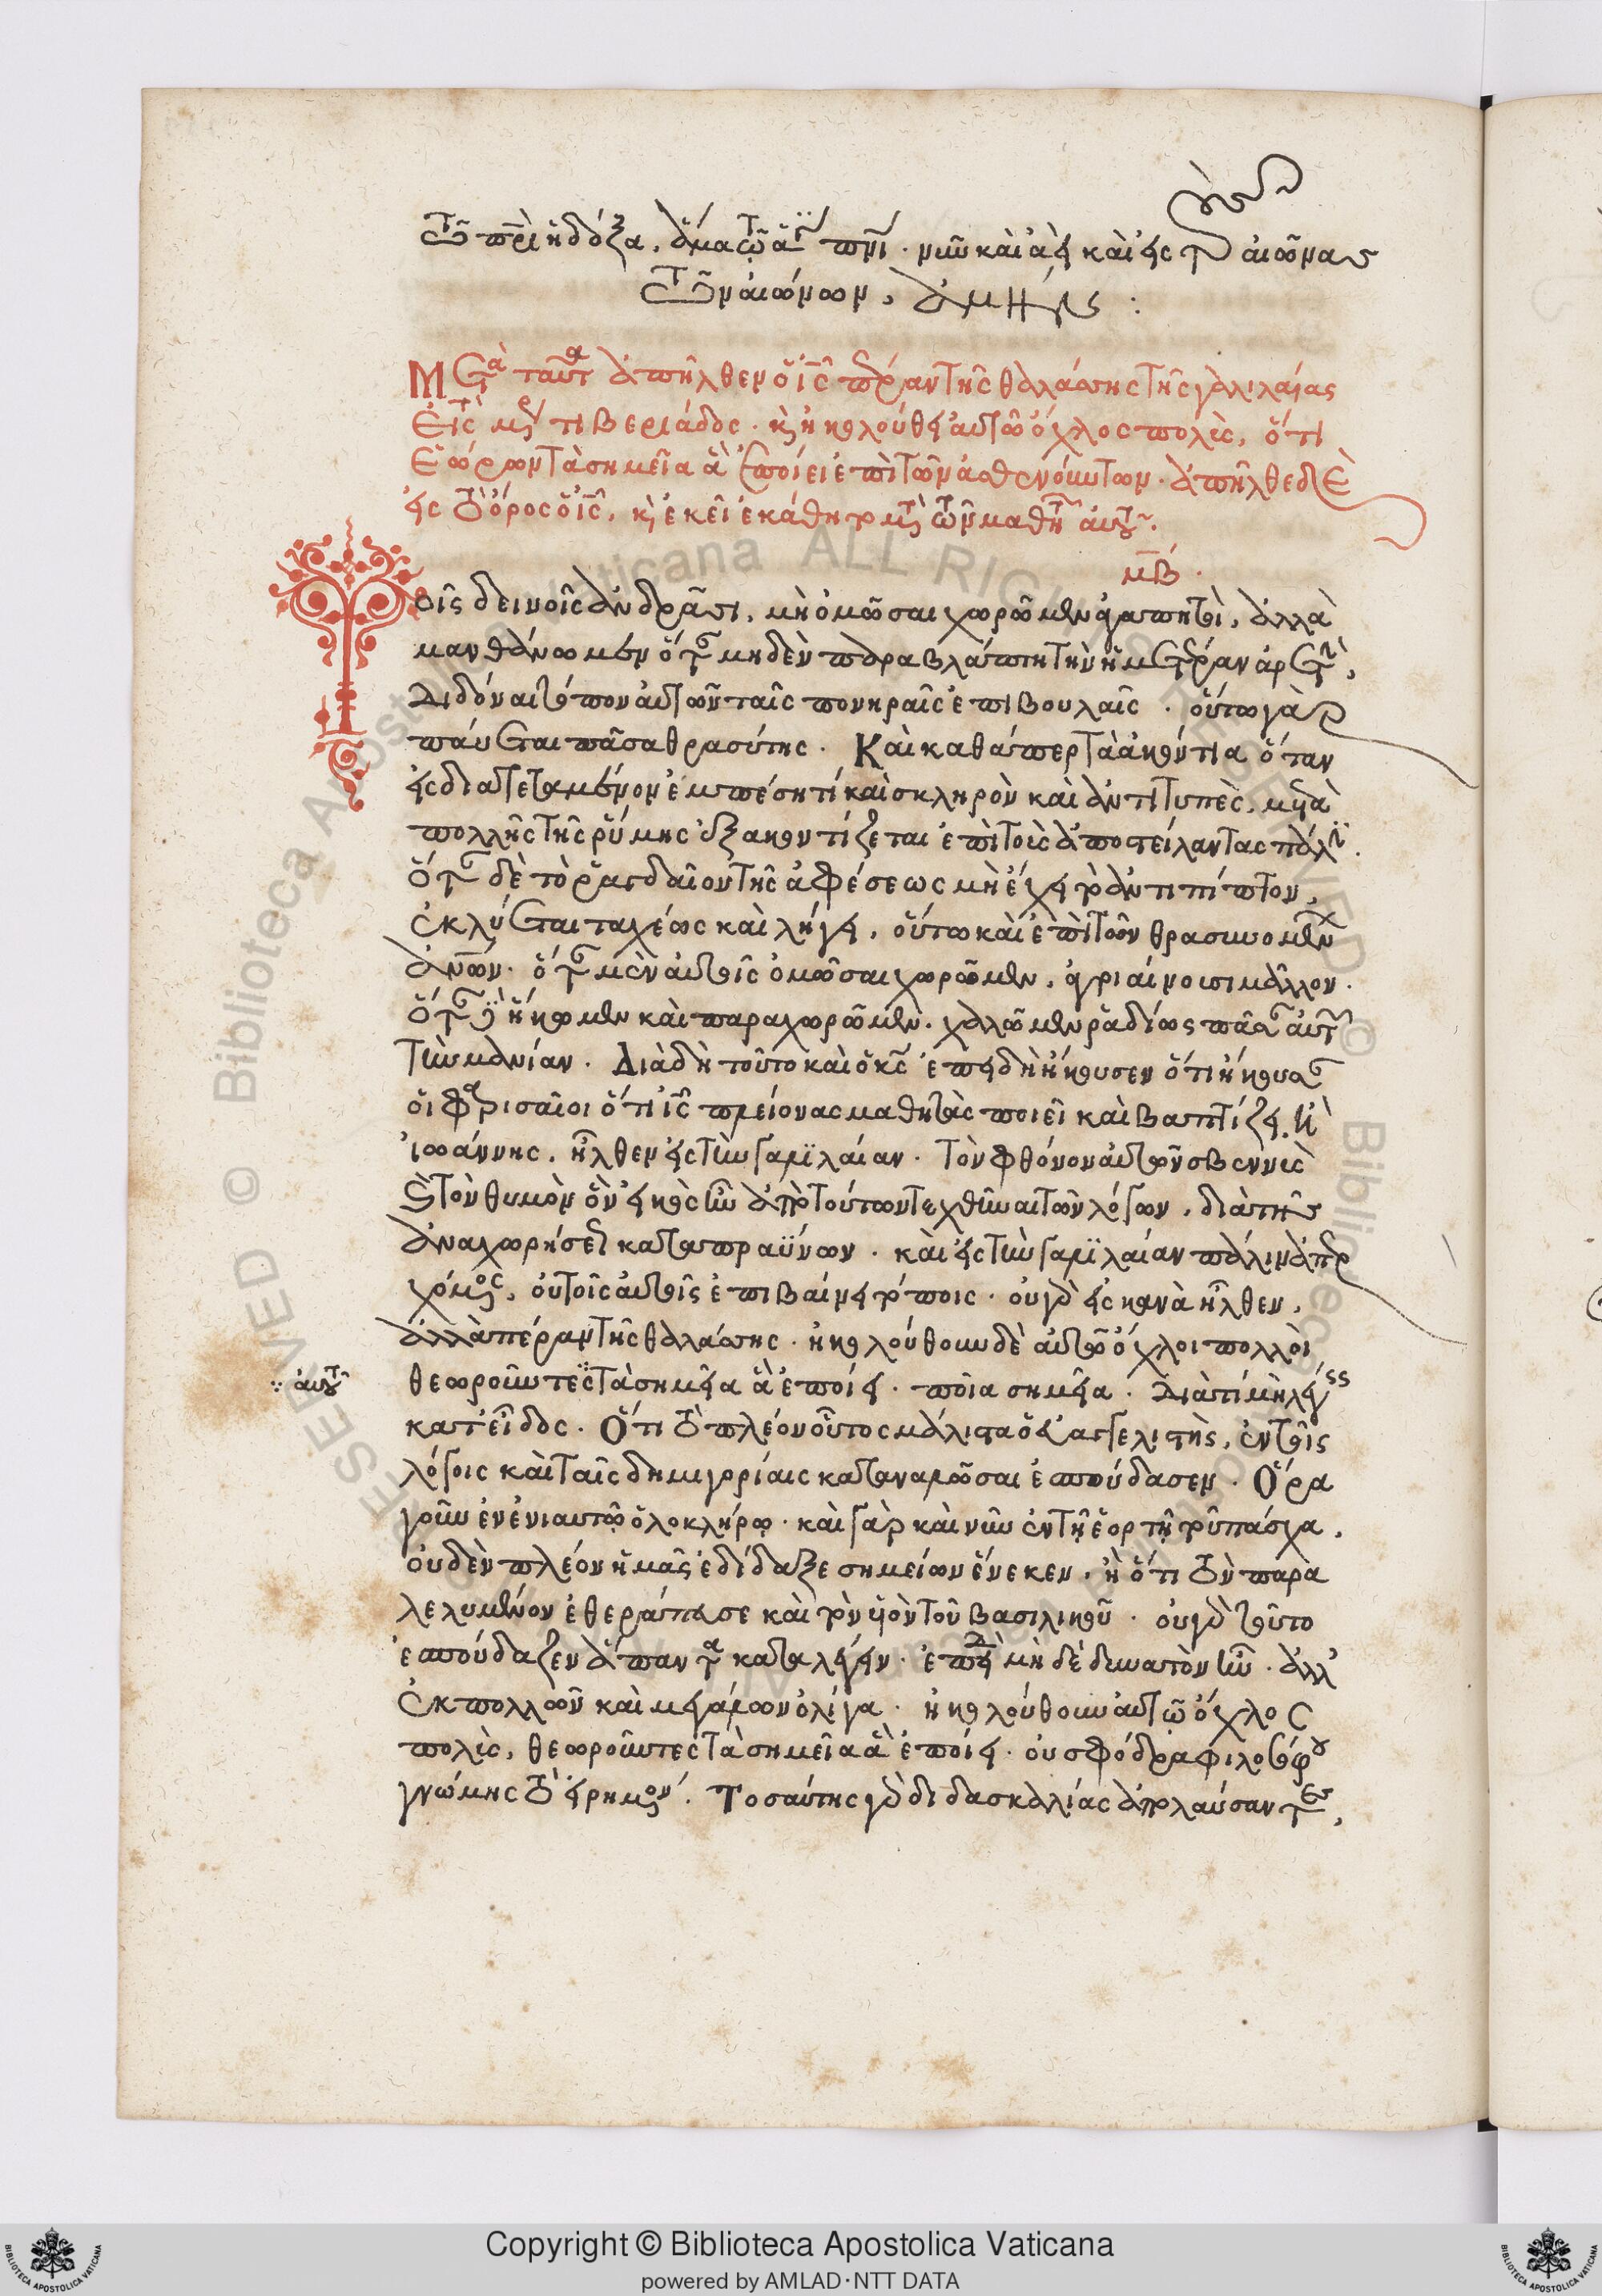 τῷ πρὶ ἡ δόξα, ἅμα τῷ ἁγίῳ πνι · νῦν καὶ ἀεὶ καὶ εἰς τοὺς αἰῶνας
τῶν αἰώνων, ἀμήν :
Μετὰ ταῦτα ἀπῆλθεν ὁ ις πέραν τῆς θαλάσσης τῆς γαλιλαίας
εἰς τὰ μέρη τιβεριάδος · καὶ ἠκολούθει αὐτῶ ὄχλος πολὺς, ὅτι
ἑώρων τὰ σημεῖα ἃ ἐποίει ἐπὶ τῶν ἀσθενούντων · ἀπῆλθε δὲ
εἰς τὸ ὄρος ὁ ις, καὶ ἐκεῖ ἐκάθητο μετὰ τῶν μαθητῶν αὐτοῦ.
μβ ·
Τοῖς δεινοῖς ἀνδράσι, μὴ ὁμῶσαι χωρῶμεν ἀγαπητοὶ, ἀλλὰ
μανθάνωμεν ὅταν μηδὲν παραβλάπτη τὴν ἡμετέραν ἀρετὴν,
διδόναι τόπον αὐτῶν ταῖς πονηραῖς ἐπιβουλαῖς · οὕτω γὰρ
παύεται πᾶσα θρασύτης · Καὶ καθάπερ τὰ ἀκόντια ὅταν
εἰς διατεταμένον ἐμπέση τί καὶ σκληρὸν καὶ ἀντιτυπὲς, μετὰ
πολλῆς τῆς ῥύμης ἐξακοντίζεται ἐπὶ τοὺς ἀποστείλαντας πάλιν.
ὅταν δὲ τὸ ῥαγδαῖον τῆς ἀφέσεως μὴ ἔχη τὸ ἀντιπίπτον,
ἐκλύεται ταχέως καὶ λήγει, οὕτω καὶ ἐπὶ τῶν θρασυνομένων
ἀνων · ὅταν μὲν αὐτοῖς ὁμῶσαι χωρῶμεν, ἀγριαίνουσι μᾶλλον ·
ὅταν δὲ ἥκωμεν καὶ παραχωρῶμεν · χαλῶμεν ῥαδίως πᾶσαν αὐτῶν
τὴν μανίαν · Διὰ δὴ τοῦτο καὶ ὁ κς ἐπειδὴ ἤκουσεν ὅτι ἤκουσαν
οἱ φαρισαῖοι ὅτι ις πλείονας μαθητὰς ποιεῖ καὶ βαπτίζει ἢ
ἰωάννης, ἦλθεν εἰς τὴν γαλιλαίαν · τὸν φθόνον αὐτῶν σβεννὺς
καὶ τὸν θυμὸν ὃν εἰκὸς ἦν ἀπὸ τούτων τεχθῆναι τῶν λόγων, διὰ τῆς
ἀναχωρήσεως καταπραΰνων · καὶ εἰς τὴν γαλιλαίαν πάλιν ἀπερ
χόμενος, οὐ τοῖς αὐτοῖς ἐπιβαίνει τόποις · οὐ γὰρ εἰς κανὰ ἦλθεν,
ἀλλὰ πέραν τῆς θαλάσσης · ἠκολούθουν δὲ αὐτῶ ὄχλοι πολλοὶ
αὐτοῦ
θεωροῦντες τὰ σημεῖα ἃ ἐποίει · ποῖα σημεῖα · Διὰ τί μὴ λέγει
κατ εἶδος · Ὅτι τὸ πλέον οὗτος μάλιστα ὁ εὐαγγελιστὴς, ἐν τοῖς
λόγοις καὶ ταῖς δημηγορίαις καταναλῶσαι ἐσπούδασεν · Ὅρα
γοῦν ἐν ἐνιαυτῶ ὁλοκλήρω · καὶ γὰρ καὶ νῦν ἐν τῆ ἑορτῆ τοῦ πάσχα,
οὐδὲν πλέον ἡμᾶς ἐδίδαξε σημείων ἕνεκεν, ἢ ὅτι τὸν παρα
λελυμένον ἐθεράπευσε καὶ τὸν υἱὸν τοῦ βασιλικοῦ · οὐ γὰρ τοῦτο
ἐσπούδαζεν ἅπαντα καταλέγειν · ἐπεὶ μὴ δὲ δυνατὸν ἦν · ἀλλ
ἐκ πολλῶν καὶ μεγάλων ὀλίγα · ἠκολούθουν αὐτῶ ὄχλος
πολὺς, θεωροῦντες τὰ σημεῖα ἃ ἐποίει · οὐ σφόδρα φιλοσόφου
γνώμης τὸ εἰρημένον · Τοσαύτης γὰρ διδασκαλίας ἀπολαύσαντες,
Copyright © Biblioteca Apostolica Vaticana
powered by AMLAD·NTT DATA